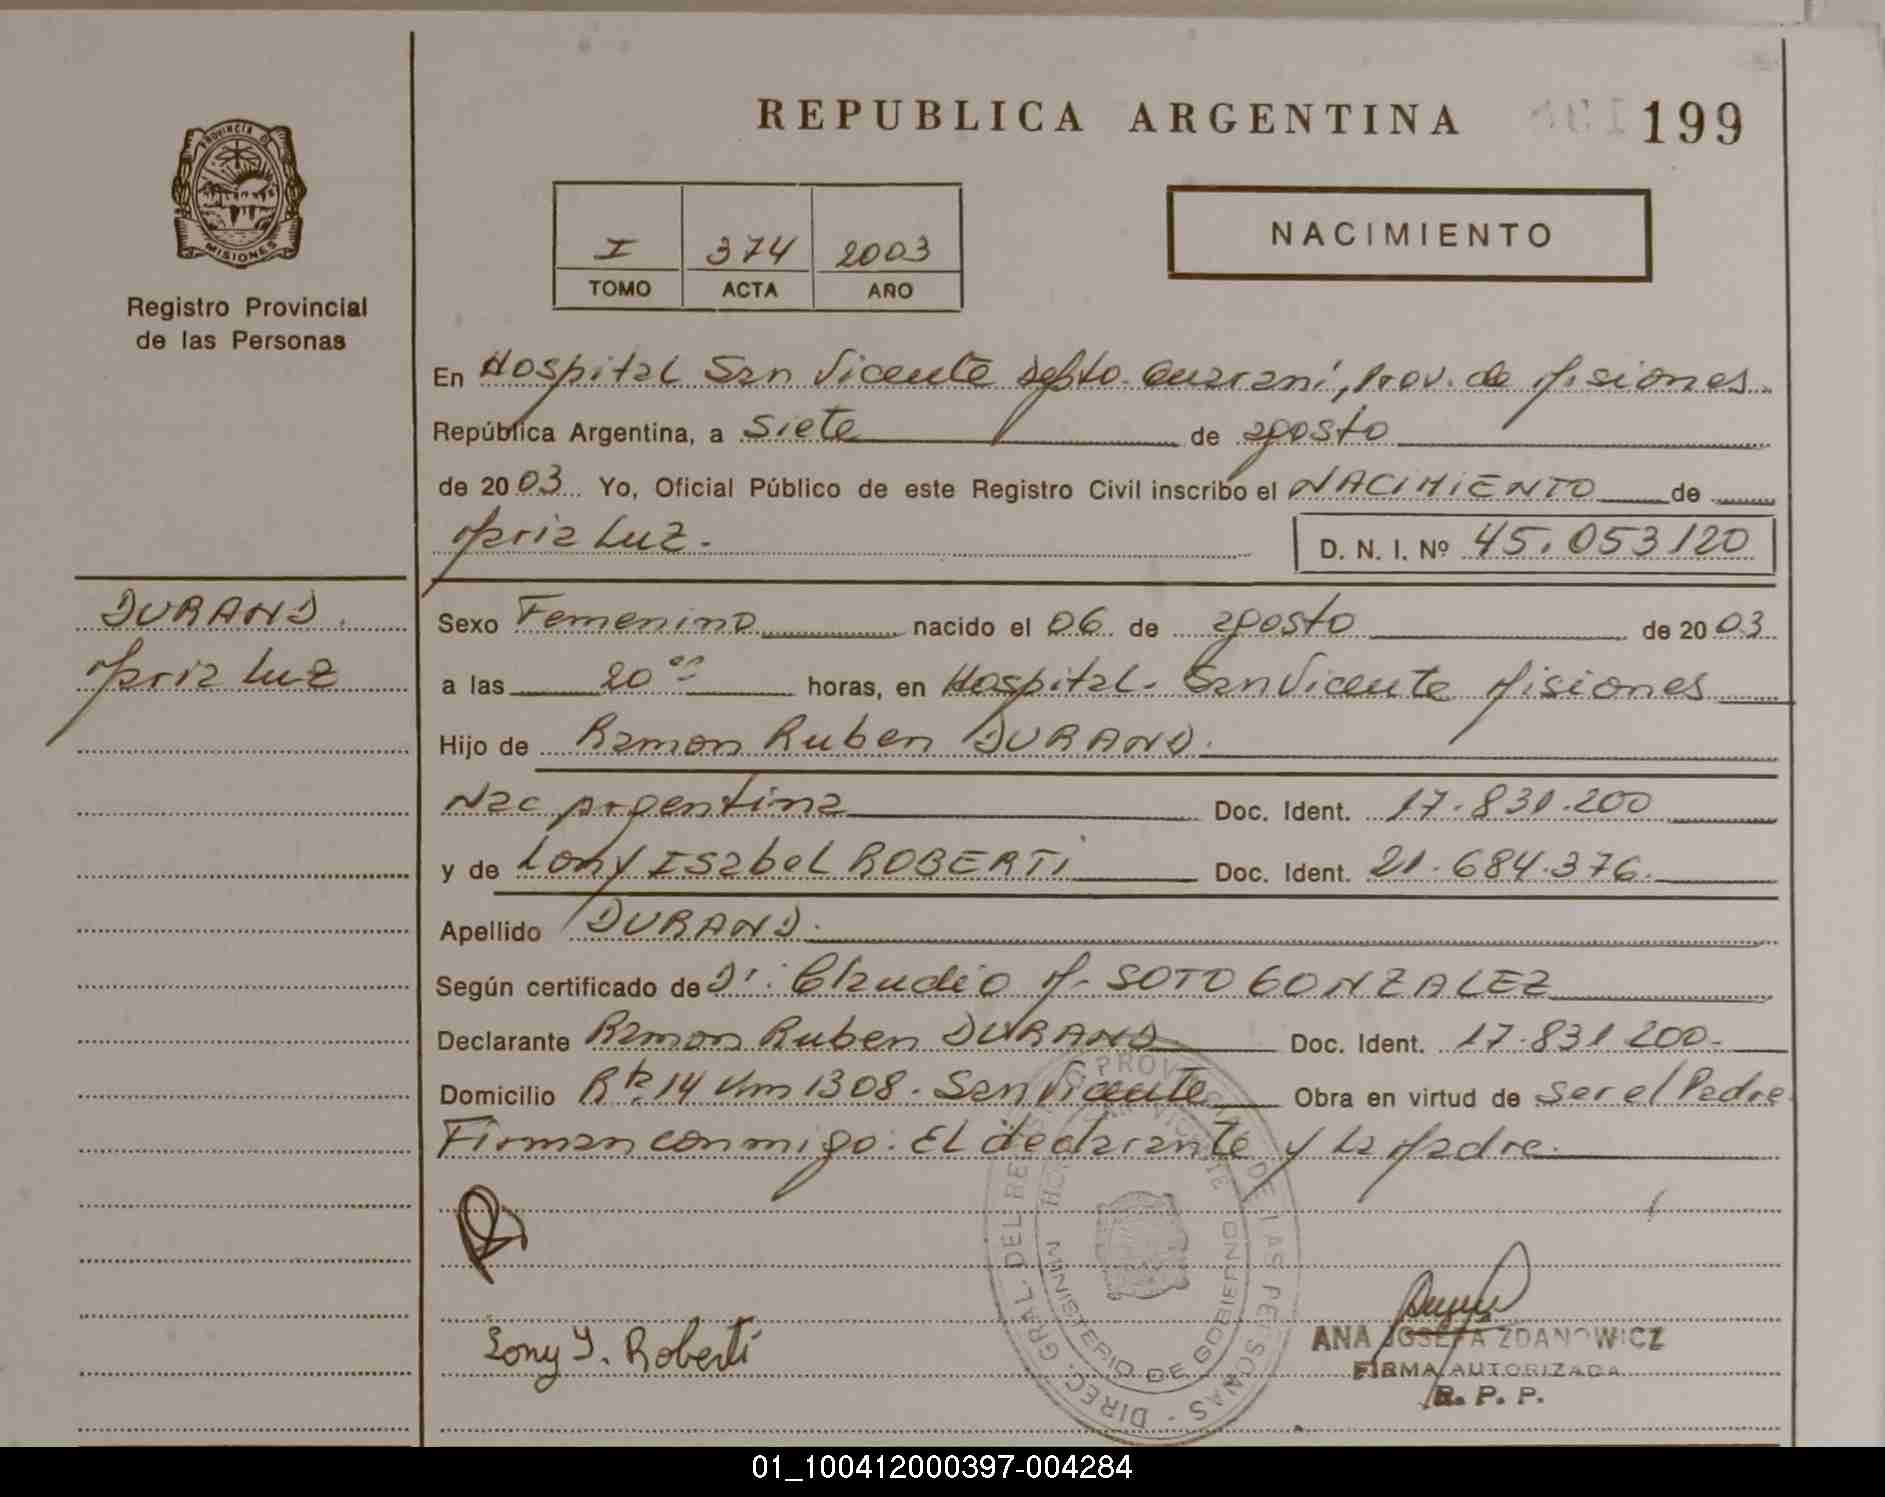 REPUBLICA ARGENTINA 199
PROVINCIA DE
MISIONES
Registro Provincial
de las Personas
I 374 2003
TOMO ACTA AÑO
NACIMIENTO
En Hospital San Vicente Depto. Guaraní, Prov. de Misiones
República Argentina, a siete de agosto
de 2003 Yo, Oficial Público de este Registro Civil inscribo el NACIMIENTO de
Maria Luz.
D. N. I. Nº 45.053120
DURAND.
Maria Luz
Sexo Femenino nacido el 06 de agosto de 2003
a las 20 00 horas, en Hospital - San Vicente Misiones
Hijo de Ramon Ruben DURAND.
Nac Argentina Doc. Ident. 17.831.200
y de Lony Isabel ROBERTI Doc. Ident. 21.684.376.
Apellido DURAND.
Según certificado de Dr. Claudio M. SOTO GONZALEZ
Declarante Ramon Ruben DURAND Doc. Ident. 17.831 200.
Domicilio Rta. 14 Km 1308. San Vicente Obra en virtud de ser el Padre
Firman conmigo: El declarante y la Madre.
Lony I. Roberti
DIREC. GRAL. DEL REG. PROV. DE LAS PERSONAS
MINISTERIO DE GOBIERNO
ANA JOSEFA ZDANOWICZ
FIRMA AUTORIZADA
R. P. P.
01_100412000397-004284